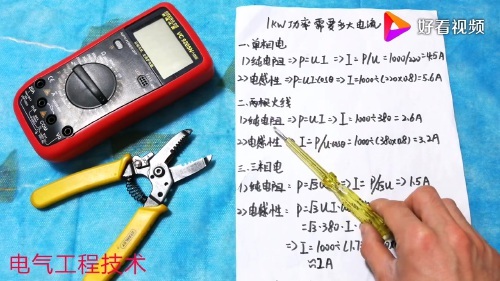 好看视频
1KW功率需要多大电流
一.单相电
1)纯电阻⇒P=UI⇒I=P/U=1000/220=4.5A
2)电感性⇒P=UIcosθ⇒I=1000÷(220×0.8)=5.6A
二.两根火线
1)纯电阻⇒P=UI⇒I=1000÷380=2.6A
2)电感性⇒I=P/U·cosθ=1000÷(380×0.8)=3.2A
三.三相电
1)纯电阻: P=√3U ⇒I=P/√3U⇒1.5A
2)电感性: P=√3UI·
=√3·380·I·
⇒I=1000÷(1.7
≈2A
电气工程技术